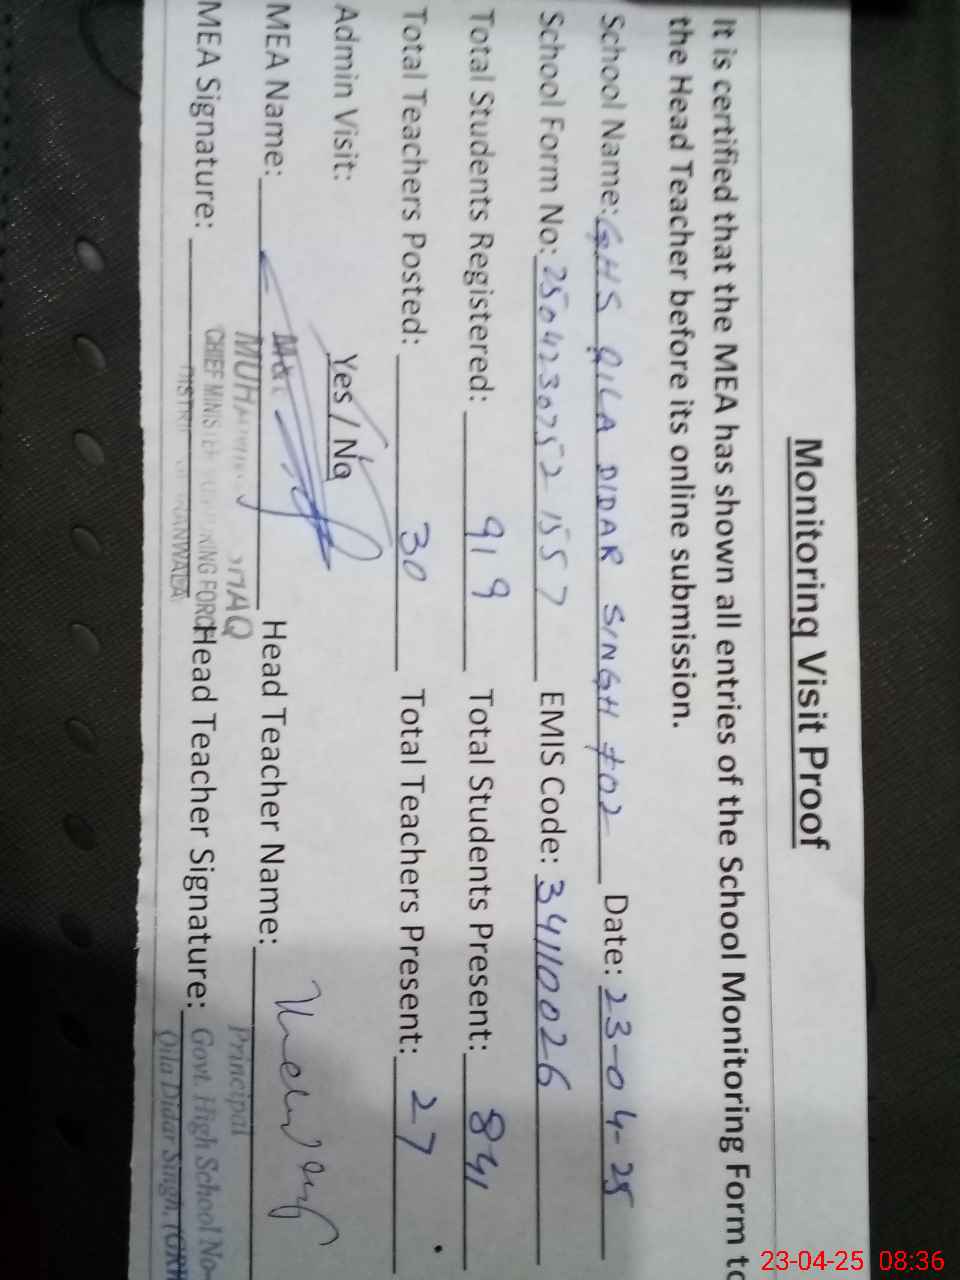 Monitoring Visit Proof
It is certified that the MEA has shown all entries of the School Monitoring Form to
the Head Teacher before its online submission.
School Name: GHS QILA DIDAR SINGH #02 Date: 23-04-25
School Form No: 25042307521557 EMIS Code: 34110026
Total Students Registered: 919 Total Students Present: 841
Total Teachers Posted: 30 Total Teachers Present: 27
Admin Visit: Yes / No
MEA Name: Head Teacher Name:
MEA Signature: Head Teacher Signature:
CHIEF MINISTER MONITORING FORCE
Principal
Govt. High School No-
Qila Didar Singh, (GRW
23-04-25 08:36